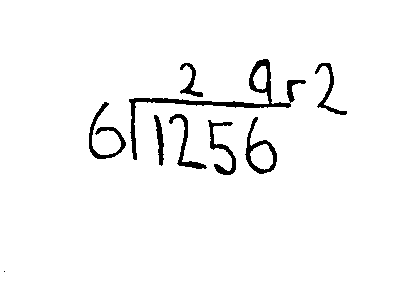 2 9r2
6)1256